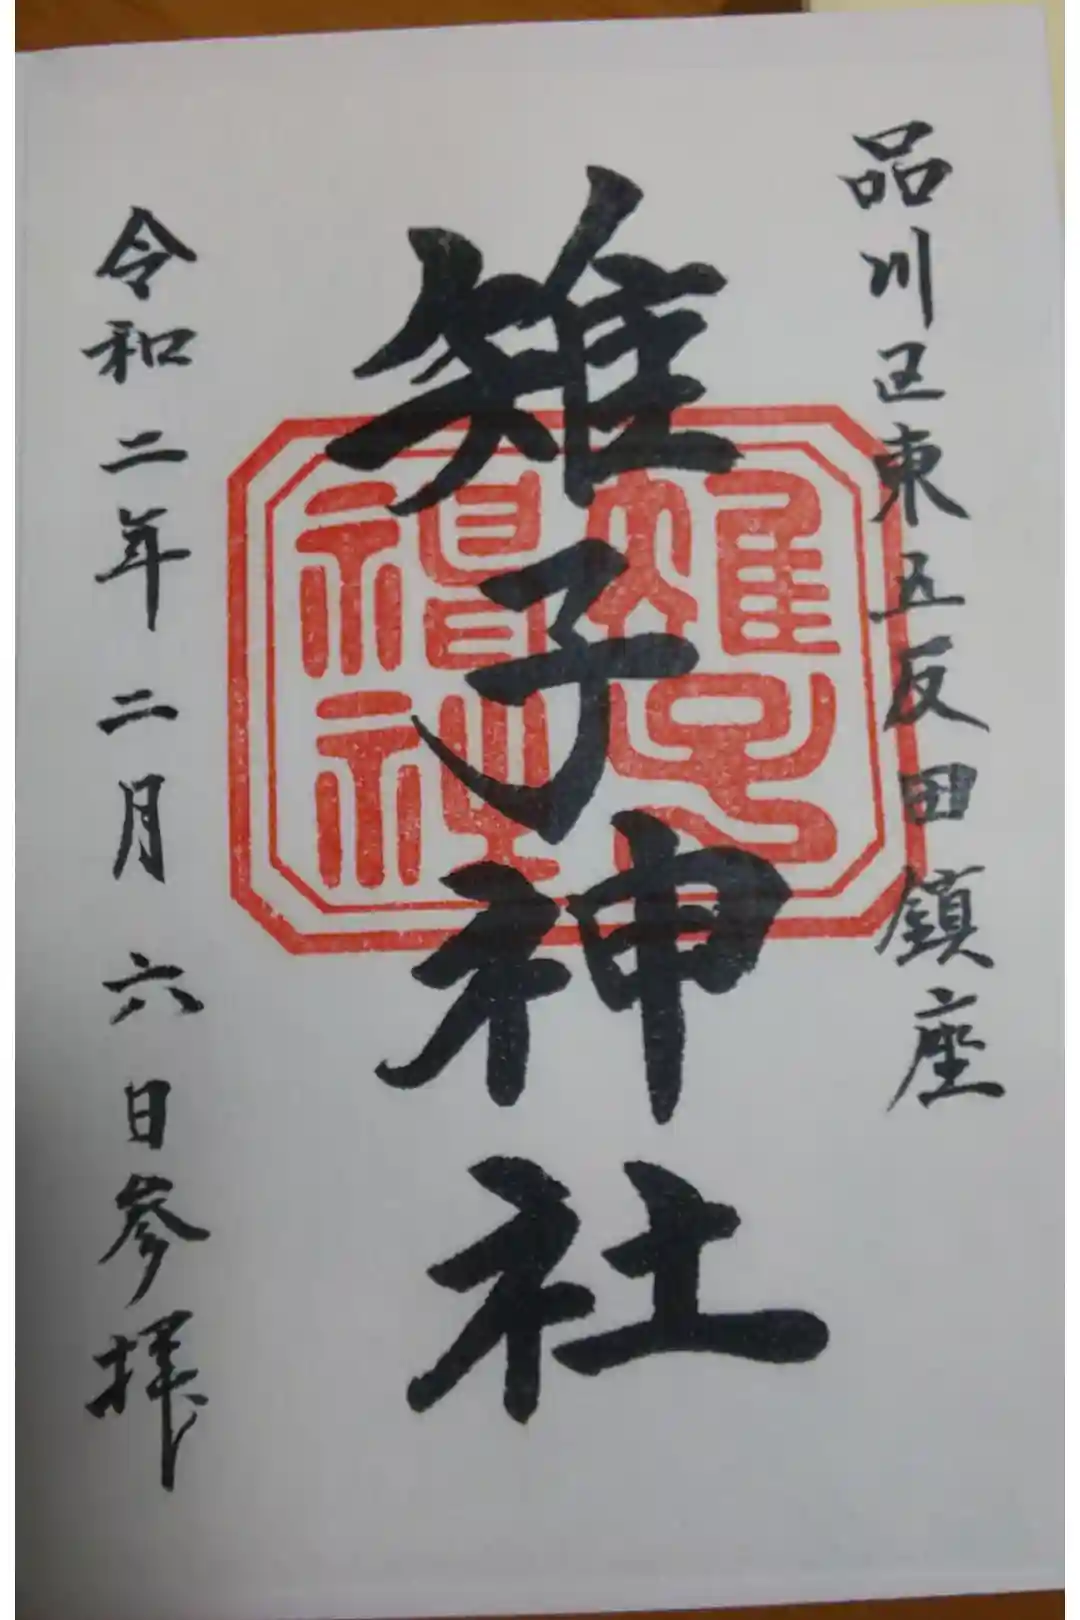 品川区東五反田鎮座
雉子神社
令和二年二月六日参拝
雉子